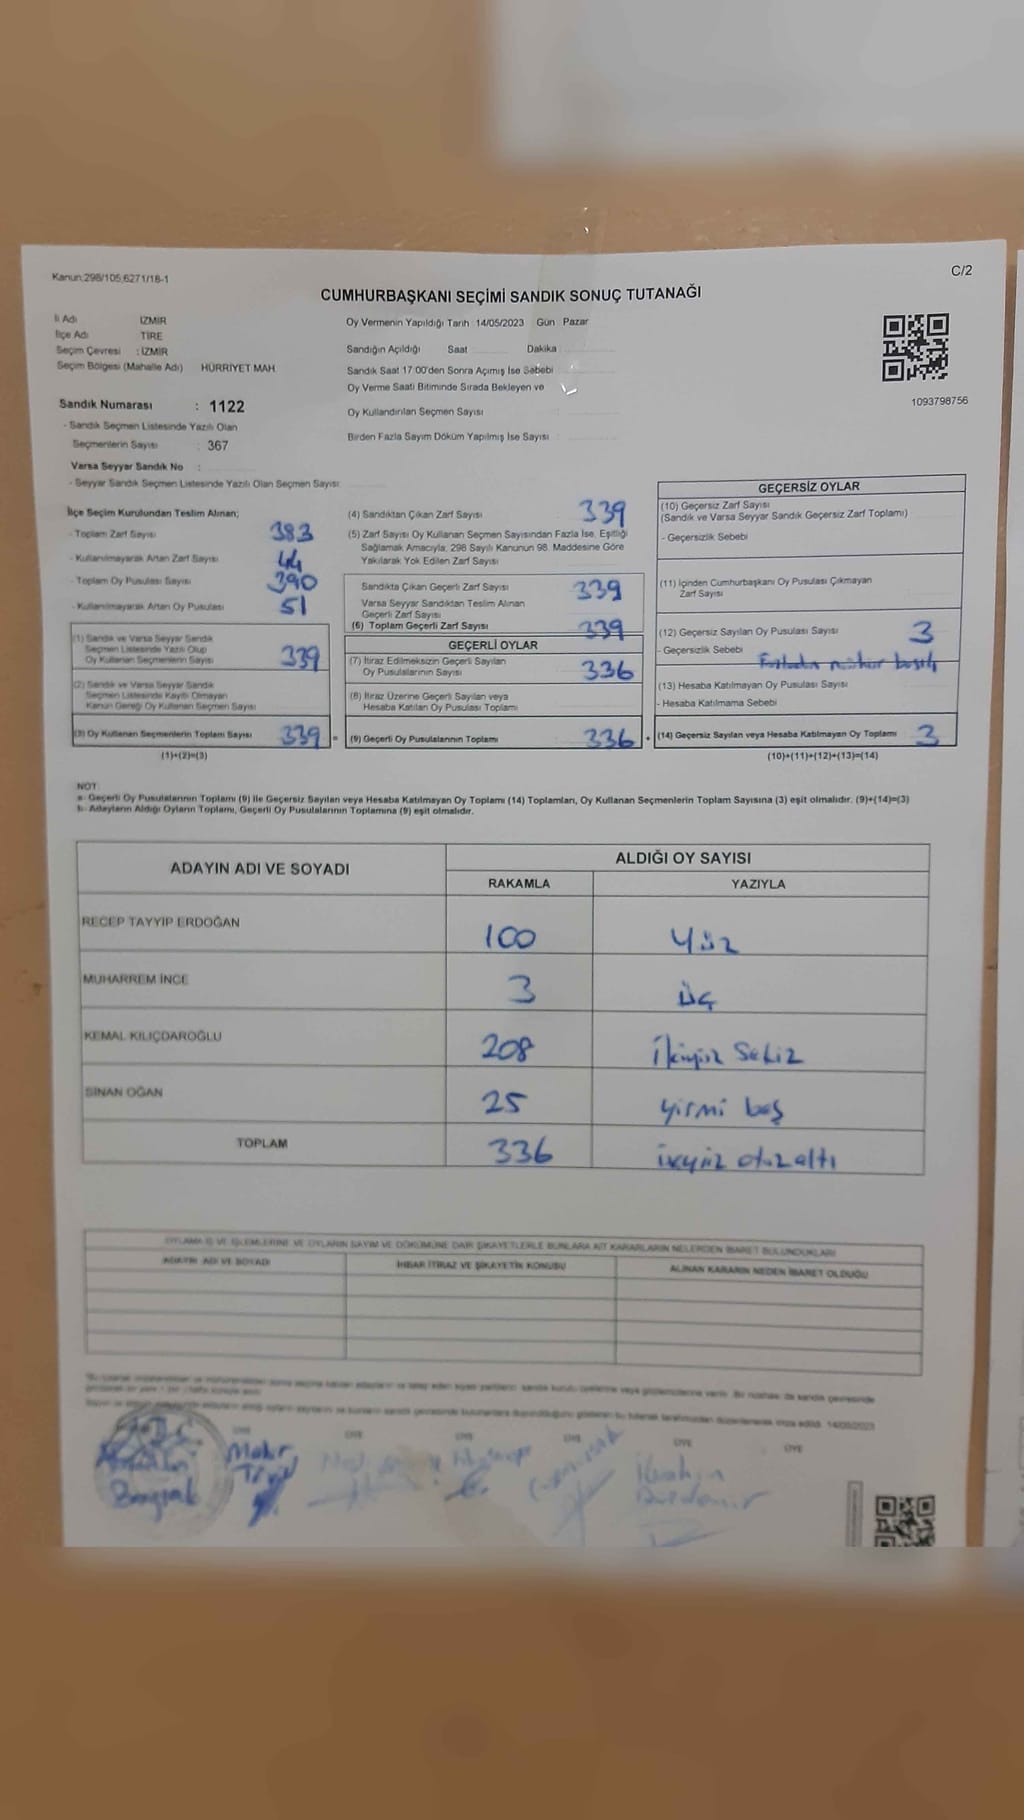 Kanun:298/105,6271/18-1
C/2
CUMHURBAŞKANI SEÇİMİ SANDIK SONUÇ TUTANAĞI
İl Adı İZMİR
İlçe Adı TİRE
Seçim Çevresi : İZMİR
Seçim Bölgesi (Mahalle Adı) HÜRRİYET MAH.
Sandık Numarası : 1122
- Sandık Seçmen Listesinde Yazılı Olan
Seçmenlerin Sayısı : 367
Varsa Seyyar Sandık No :
- Seyyar Sandık Seçmen Listesinde Yazılı Olan Seçmen Sayısı:
Oy Vermenin Yapıldığı Tarih 14/05/2023 Gün Pazar
Sandığın Açıldığı Saat Dakika
Sandık Saat 17:00'den Sonra Açımış İse Sebebi
Oy Verme Saati Bitiminde Sırada Bekleyen ve
Oy Kullandırılan Seçmen Sayısı
Birden Fazla Sayım Döküm Yapılmış İse Sayısı
1093798756
İlçe Seçim Kurulundan Teslim Alınan;
- Toplam Zarf Sayısı 383
- Kullanılmayarak Artan Zarf Sayısı 44
- Toplam Oy Pusulası Sayısı 390
- Kullanılmayarak Artan Oy Pusulası 51
(1) Sandık ve Varsa Seyyar Sandık
Seçmen Listesinde Yazılı Olup
Oy Kullanan Seçmenlerin Sayısı 339
(2) Sandık ve Varsa Seyyar Sandık
Seçmen Listesinde Kayıtlı Olmayan
Kanun Gereği Oy Kullanan Seçmen Sayısı
(3) Oy Kullanan Seçmenlerin Toplam Sayısı 339 =
(1)+(2)=(3)
(4) Sandıktan Çıkan Zarf Sayısı 339
(5) Zarf Sayısı Oy Kullanan Seçmen Sayısından Fazla İse, Eşitliği
Sağlamak Amacıyla, 298 Sayılı Kanunun 98. Maddesine Göre
Yakılarak Yok Edilen Zarf Sayısı
Sandıkta Çıkan Geçerli Zarf Sayısı 339
Varsa Seyyar Sandıktan Teslim Alınan
Geçerli Zarf Sayısı
(6) Toplam Geçerli Zarf Sayısı 339
GEÇERLİ OYLAR
(7) İtiraz Edilmeksizin Geçerli Sayılan
Oy Pusulalarının Sayısı 336
(8) İtiraz Üzerine Geçerli Sayılan veya
Hesaba Katılan Oy Pusulası Toplamı
(9) Geçerli Oy Pusulalarının Toplamı 336 +
GEÇERSİZ OYLAR
(10) Geçersiz Zarf Sayısı
(Sandık ve Varsa Seyyar Sandık Geçersiz Zarf Toplamı)
- Geçersizlik Sebebi
(11) İçinden Cumhurbaşkanı Oy Pusulası Çıkmayan
Zarf Sayısı
(12) Geçersiz Sayılan Oy Pusulası Sayısı 3
- Geçersizlik Sebebi Fazladan mühür basılı
(13) Hesaba Katılmayan Oy Pusulası Sayısı
- Hesaba Katılmama Sebebi
(14) Geçersiz Sayılan veya Hesaba Katılmayan Oy Toplamı 3
(10)+(11)+(12)+(13)=(14)
NOT:
a- Geçerli Oy Pusulalarının Toplamı (9) ile Geçersiz Sayılan veya Hesaba Katılmayan Oy Toplamı (14) Toplamları, Oy Kullanan Seçmenlerin Toplam Sayısına (3) eşit olmalıdır. (9)+(14)=(3)
b- Adayların Aldığı Oyların Toplamı, Geçerli Oy Pusulalarının Toplamına (9) eşit olmalıdır.
ADAYIN ADI VE SOYADI ALDIĞI OY SAYISI
RAKAMLA YAZIYLA
RECEP TAYYİP ERDOĞAN 100 Yüz
MUHARREM İNCE 3 üç
KEMAL KILIÇDAROĞLU 208 ikiyüz Sekiz
SİNAN OĞAN 25 yirmi beş
TOPLAM 336 üçyüz otuz altı
OYLAMA İŞ VE İŞLEMLERİNE VE OYLARIN SAYIM VE DÖKÜMÜNE DAİR ŞİKAYETLERLE BUNLARA AİT KARARLARIN NELERDEN İBARET BULUNDUKLARI
ADAYIN ADI VE SOYADI İHBAR İTİRAZ VE ŞİKAYETİN KONUSU ALINAN KARARIN NEDEN İBARET OLDUĞU
14/05/2023
ÜYE ÜYE ÜYE ÜYE ÜYE ÜYE